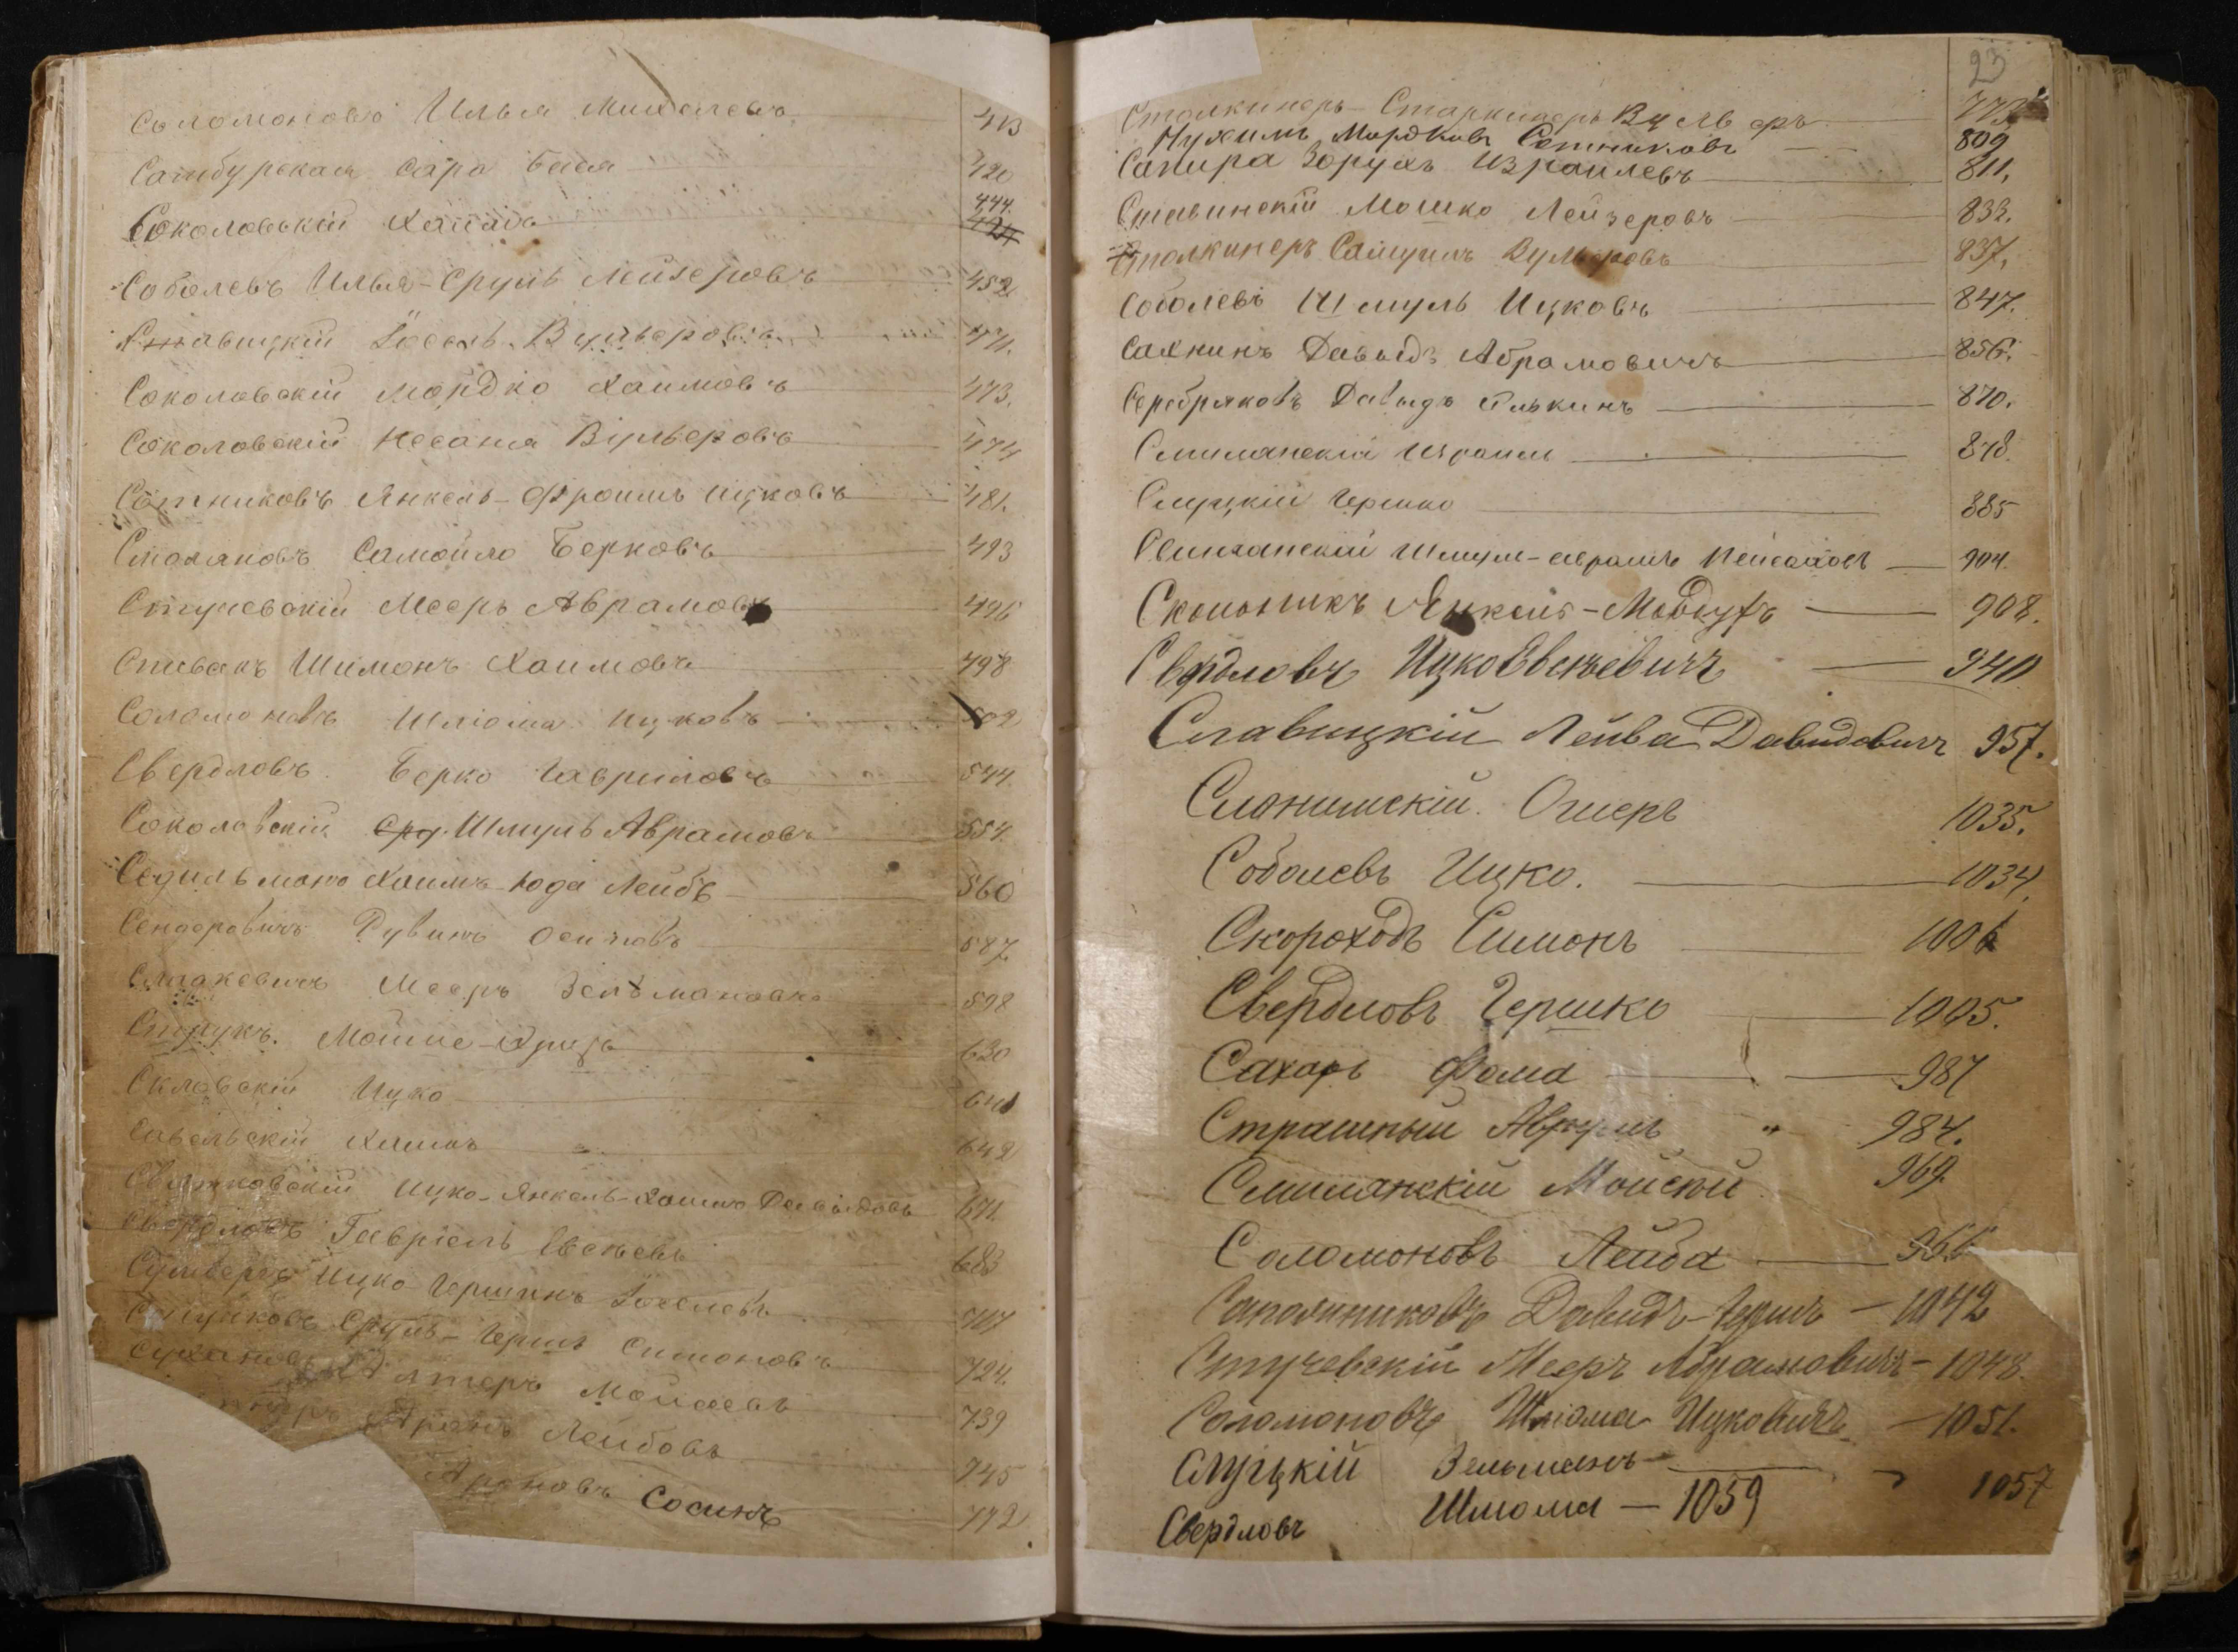 Соломоновъ Илья Михелевъ 413
Самбурская Сара Бася 420
444.
Соколовскій Хапаль 424
Соболевъ Илья-Сруль Лейзеровъ 452
Ставицкій Іосель Вульверовъ 471.
Соколовскій Мордко Хаимовъ 473.
Соколовскій Несаня Вульверовъ 474
Сотниковъ Янкель-Фроимъ Ицковъ 481.
Столяновъ Самойло Берковъ 493
Стучевскій Мееръ Аврамовъ 496
Спивакъ Шимонъ Хаимовъ 498
Соломоновъ Шліома Ицковъ 502
Свердловъ Берко Гавриловъ 544.
Соколовскій Сру. Шмуль Аврамовъ 554.
Хаимъ Юда Лейбъ 560
Сендеровичъ Рувинъ Осиповъ 587.
Мееръ Зельмановъ 598
Струкъ. Мойше 630
Скловскій Ицко
Савельскій Хаимъ 649
Ицко-Янкель-Хаимъ Давыдовъ 671.
Свердловъ Гавріелъ Евсѣевъ 683
Ицко Гершинъ Іоселевъ 707
Сруль-Гершъ Симоновъ 724.
Сухановъ Мойсеевъ 739
Аронъ Лейбовъ 745
Ароновъ Сосинъ 772.
23
Столкинеръ-Старкинеръ Вульверъ 773
Нухимъ Мордковъ Сотниковъ 809
Сапира Борухъ Израилевъ 811,
Славинскій Мошко Лейзеровъ 833.
Столкинеръ Самуилъ Вульверовъ 837,
Соболевъ Шмуль Ицковъ 847.
Сахнинъ Давыдъ Абрамовичъ 856.
Серебряковъ Давыдъ Элькинъ 870.
Смилянскій Израиль 878.
Слуцкій Гершко 885
Смилянскій Шмуль-Аврамъ Пейсаховъ 904.
Янкель 908.
Свердловъ Ицко Евсѣевичъ 940
Славицкій Лейба Давидовичъ 957.
Слонимскій. Ошеръ 1035.
Соболевъ Ицко. 1034.
Скороходъ Симонъ 1006
Свердловъ Гершко 1005.
Сахаръ Фома 987
Страшный Аврумъ " 984.
Смилянскій Мойсей 969.
Соломоновъ Лейба 966
Сапожниковъ Давидъ-Гершъ — 1042
Стучевскій Мееръ Абрамовичъ — 1048.
Соломоновъ Шліома Ицковичъ — 1051.
Слуцкій Зельманъ 1057
Свердловъ Шліома — 1059